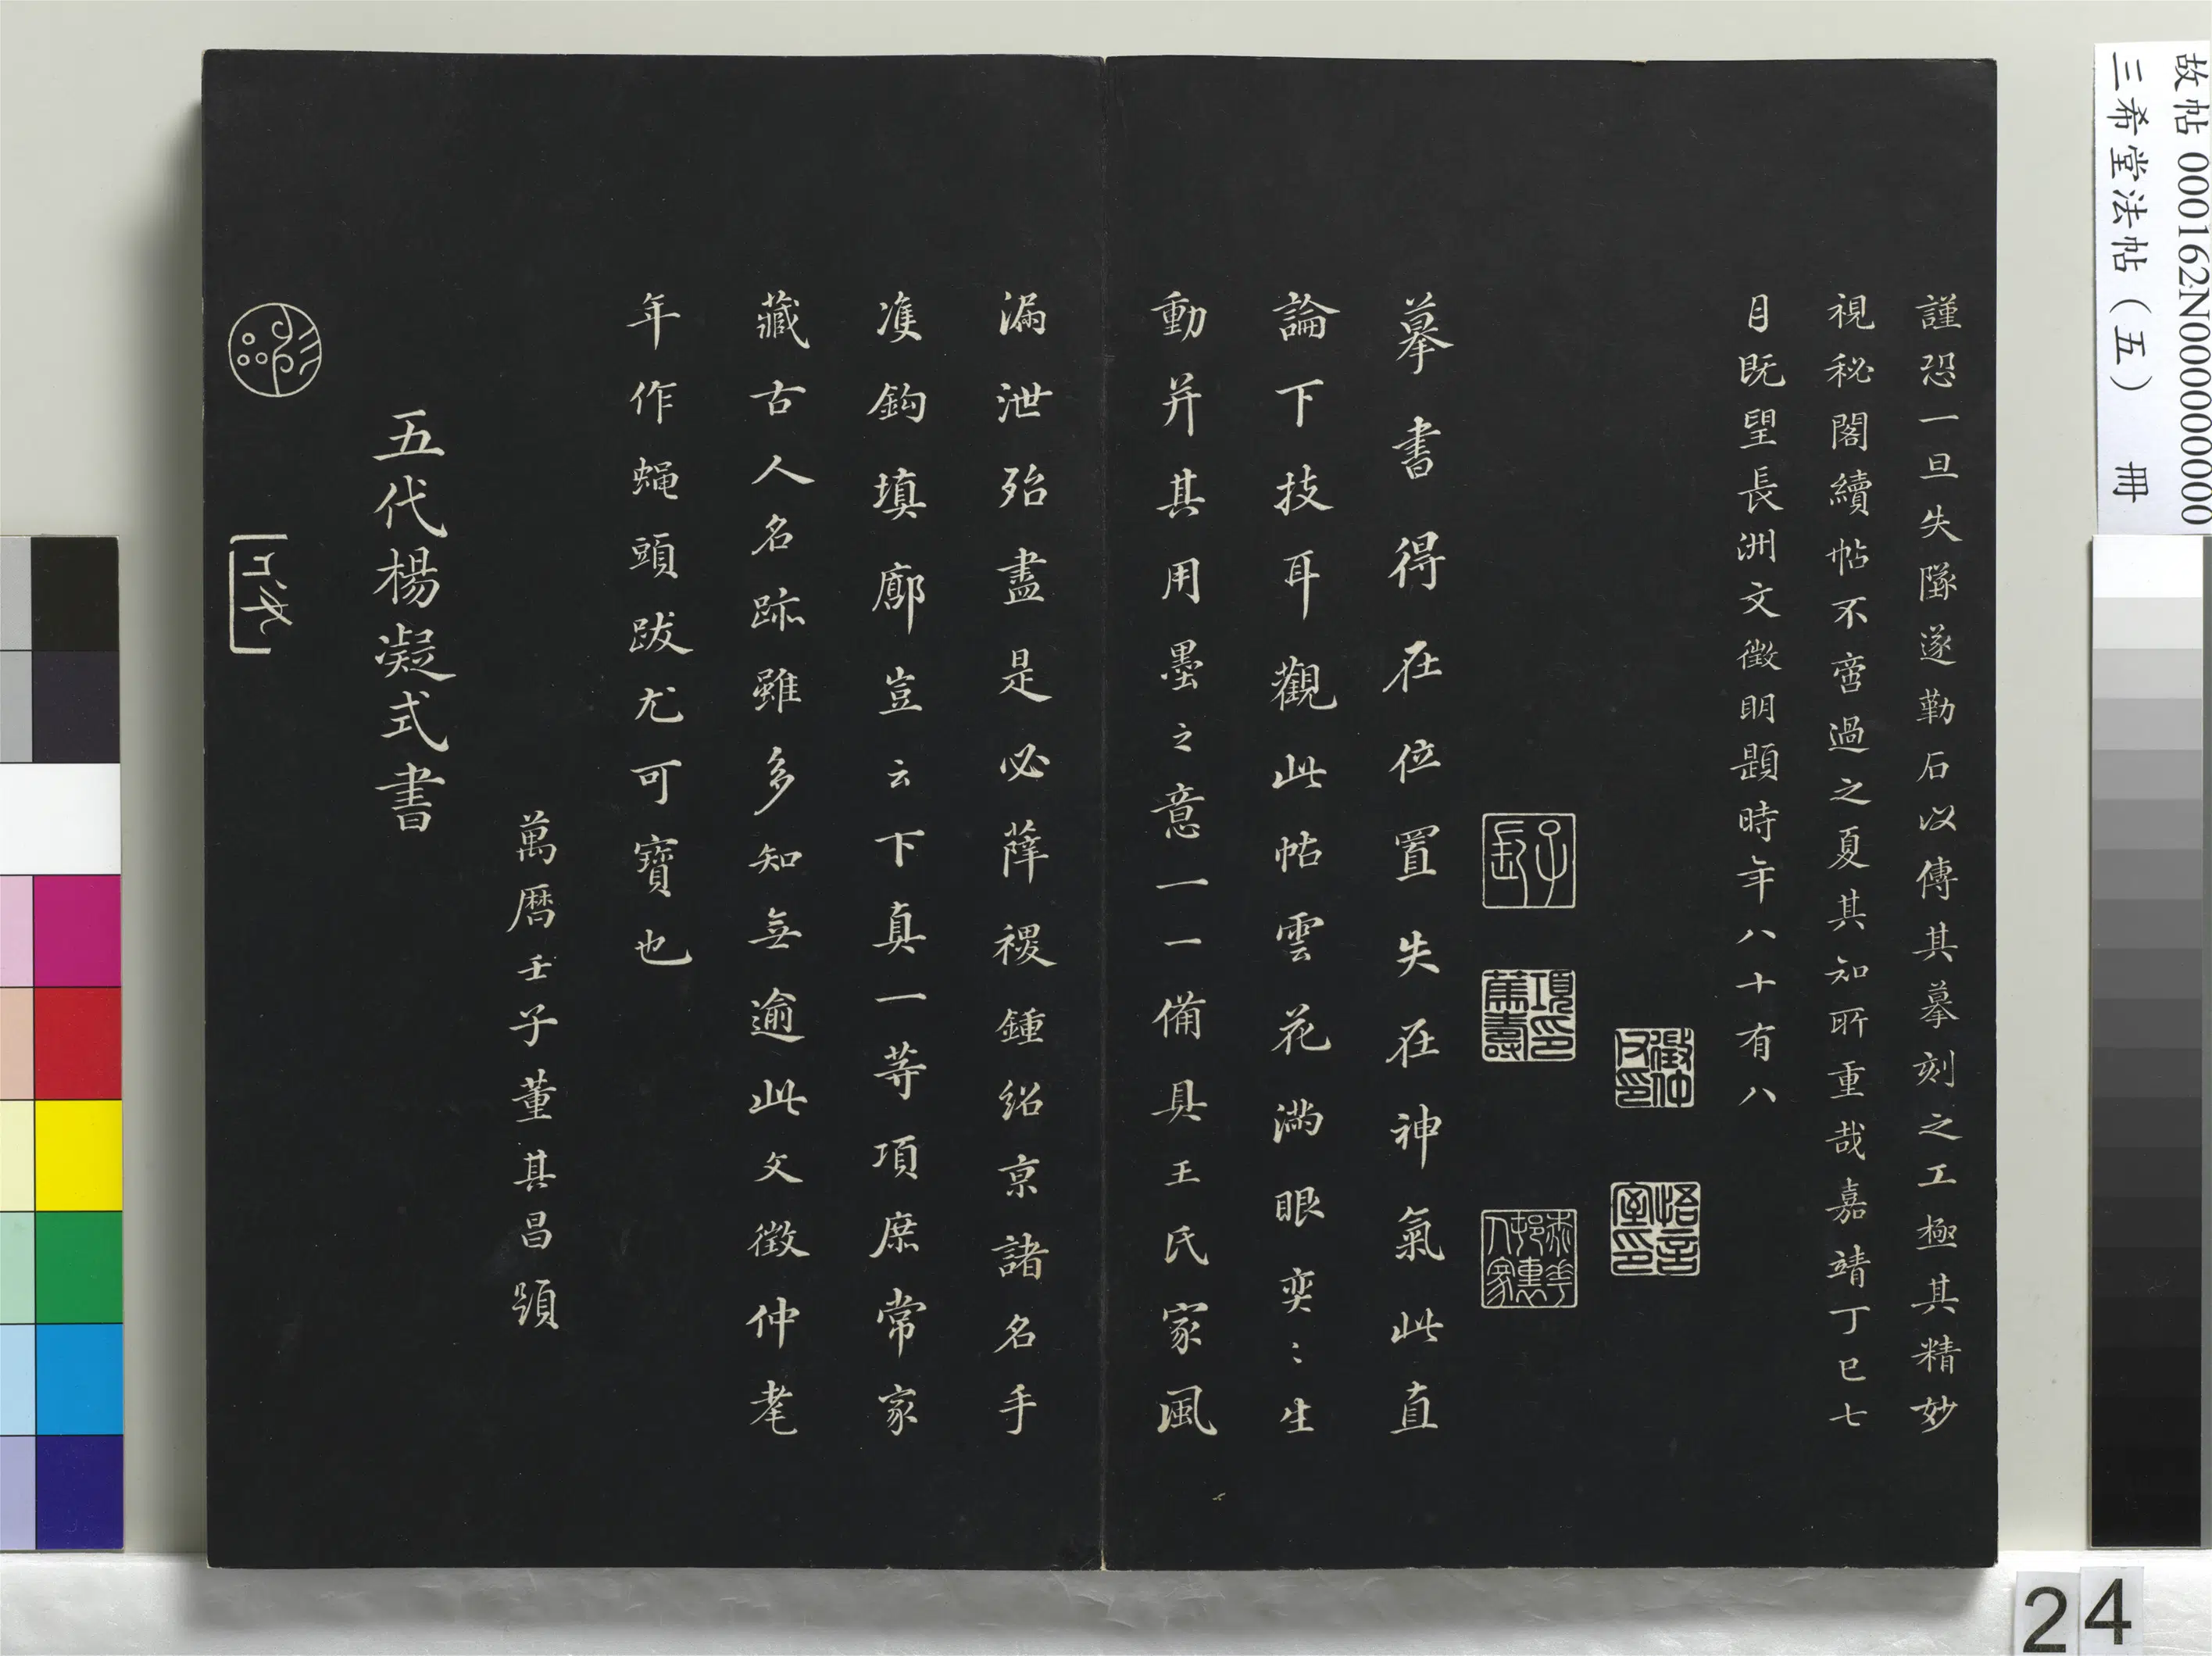 故帖 000162N000000000
三希堂法帖（五） 冊
謹恐一旦失墜遂勒石以傳其摹刻之工極其精妙
視秘閣續帖不啻過之夏其知所重哉嘉靖丁巳七
月既望長洲文徵明題時年八十有八
徵仲父印
悟言室印
子長
項篤壽印
摹書得在位置失在神氣此直
論下技耳觀此帖雲花滿眼奕〻生
動并其用墨之意一一備具王氏家風
漏泄殆盡是必薛稷鍾紹京諸名手
准鈎填廓豈云下真一等項庶常家
藏古人名跡雖多知無逾此文徵仲耄
年作蝇頭跋尤可寶也
萬曆壬子董其昌題
五代楊凝式書
24